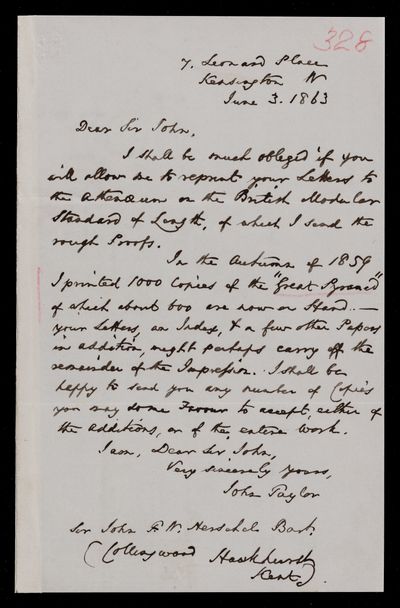 328
7, Leonard Place
Kensington W
June 3. 1863
Dear Sir John,
I shall be much obliged if you
will allow me to reprint your Letters to
the Athenæum on the British Modular
Standard of Length, of which I send the
rough Proofs.
In the Autumn of 1859
I printed 1000 Copies of the "Great Pyramid"
of which about 600 are now on Hand. —
your Letters, an Index, & a few other Papers
in addition, might perhaps carry off the
remainder of the Impression. I shall be
happy to send you any number of Copies
you may do me Favour to accept, either of
the additions, or of the entire Work.
I am, Dear Sir John,
Very sincerely yours,
John Taylor
Sir John F. W. Herschel Bart.
(Collingwood Hawkhurst
Kent)